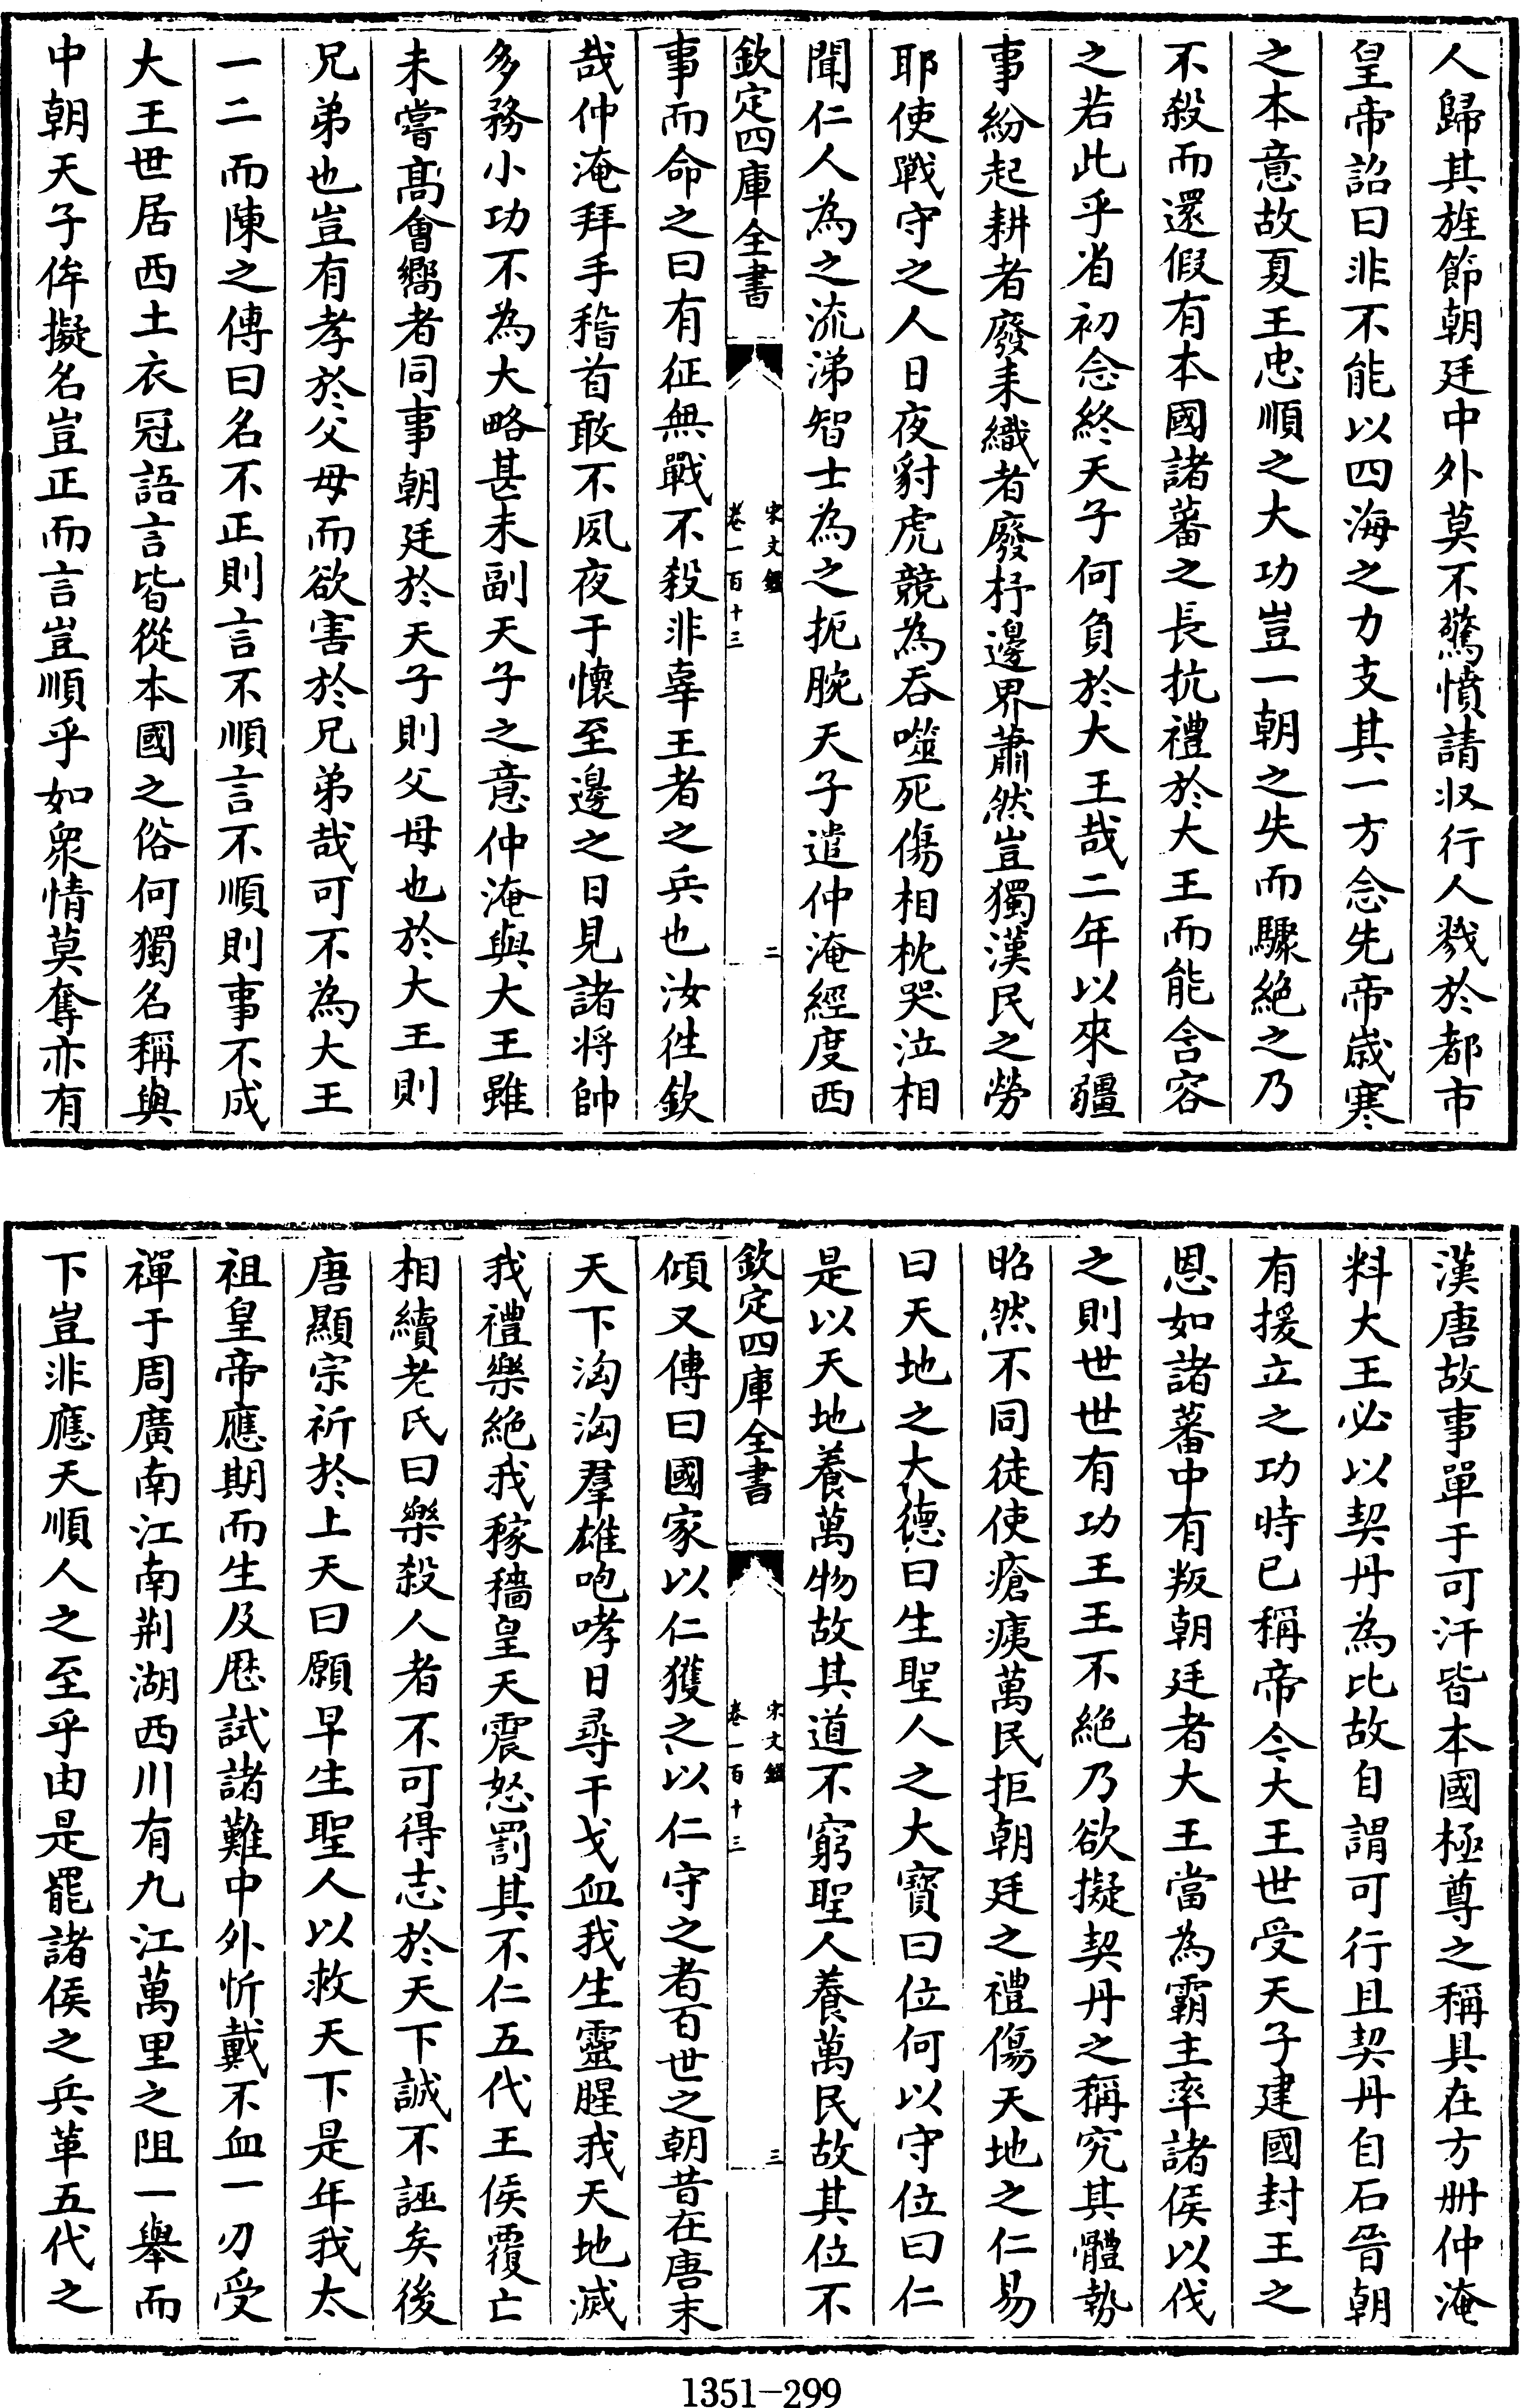 人歸其旌節朝廷中外莫不驚憤請収行人戮於都市
皇帝詔曰非不能以四海之力支其一方念先帝歳寒
之本意故夏王忠順之大功豈一朝之失而驟絶之乃
不殺而還假有本國諸蕃之長抗禮於大王而能含容
之若此乎省初念終天子何負於大王哉二年以來疆
事紛起耕者廢耒織者廢杼邊界蕭然豈獨漢民之勞
耶使戰守之人日夜豺虎競為吞噬死傷相枕哭泣相
聞仁人為之流涕智士為之扼腕天子遣仲淹經度西
欽定四庫全書
宋文鑑
卷一百十三
二
事而命之曰有征無戰不殺非辜王者之兵也汝徃欽
哉仲淹拜手稽首敢不夙夜于懷至邊之日見諸将帥
多務小功不為大略甚未副天子之意仲淹與大王雖
未嘗髙㑹嚮者同事朝廷於天子則父母也於大王則
兄弟也豈有孝於父母而欲害於兄弟哉可不為大王
一二而陳之傳曰名不正則言不順言不順則事不成
大王世居西土衣冠語言皆從本國之俗何獨名稱與
中朝天子侔擬名豈正而言豈順乎如衆情莫奪亦有
漢唐故事單于可汗皆本國極尊之稱具在方冊仲淹
料大王必以契丹為比故自謂可行且契丹自石晉朝
有援立之功時已稱帝今大王世受天子建國封王之
恩如諸蕃中有叛朝廷者大王當為霸主率諸侯以伐
之則世世有功王王不絶乃欲擬契丹之稱究其體勢
昭然不同徒使瘡痍萬民拒朝廷之禮傷天地之仁易
曰天地之大德曰生聖人之大寳曰位何以守位曰仁
是以天地養萬物故其道不窮聖人養萬民故其位不
欽定四庫全書
宋文鑑
卷一百十三
三
傾又傳曰國家以仁獲之以仁守之者百世之朝昔在唐末
天下洶洶羣雄咆哮日尋干戈血我生靈腥我天地滅
我禮樂絶我稼穡皇天震怒罰其不仁五代王侯覆亡
相續老氏曰樂殺人者不可得志於天下誠不誣矣後
唐顯宗祈於上天曰願早生聖人以救天下是年我太
祖皇帝應期而生及厯試諸難中外忻戴不血一刃受
禪于周廣南江南荆湖西川有九江萬里之阻一舉而
下豈非應天順人之至乎由是罷諸侯之兵革五代之
1351-299